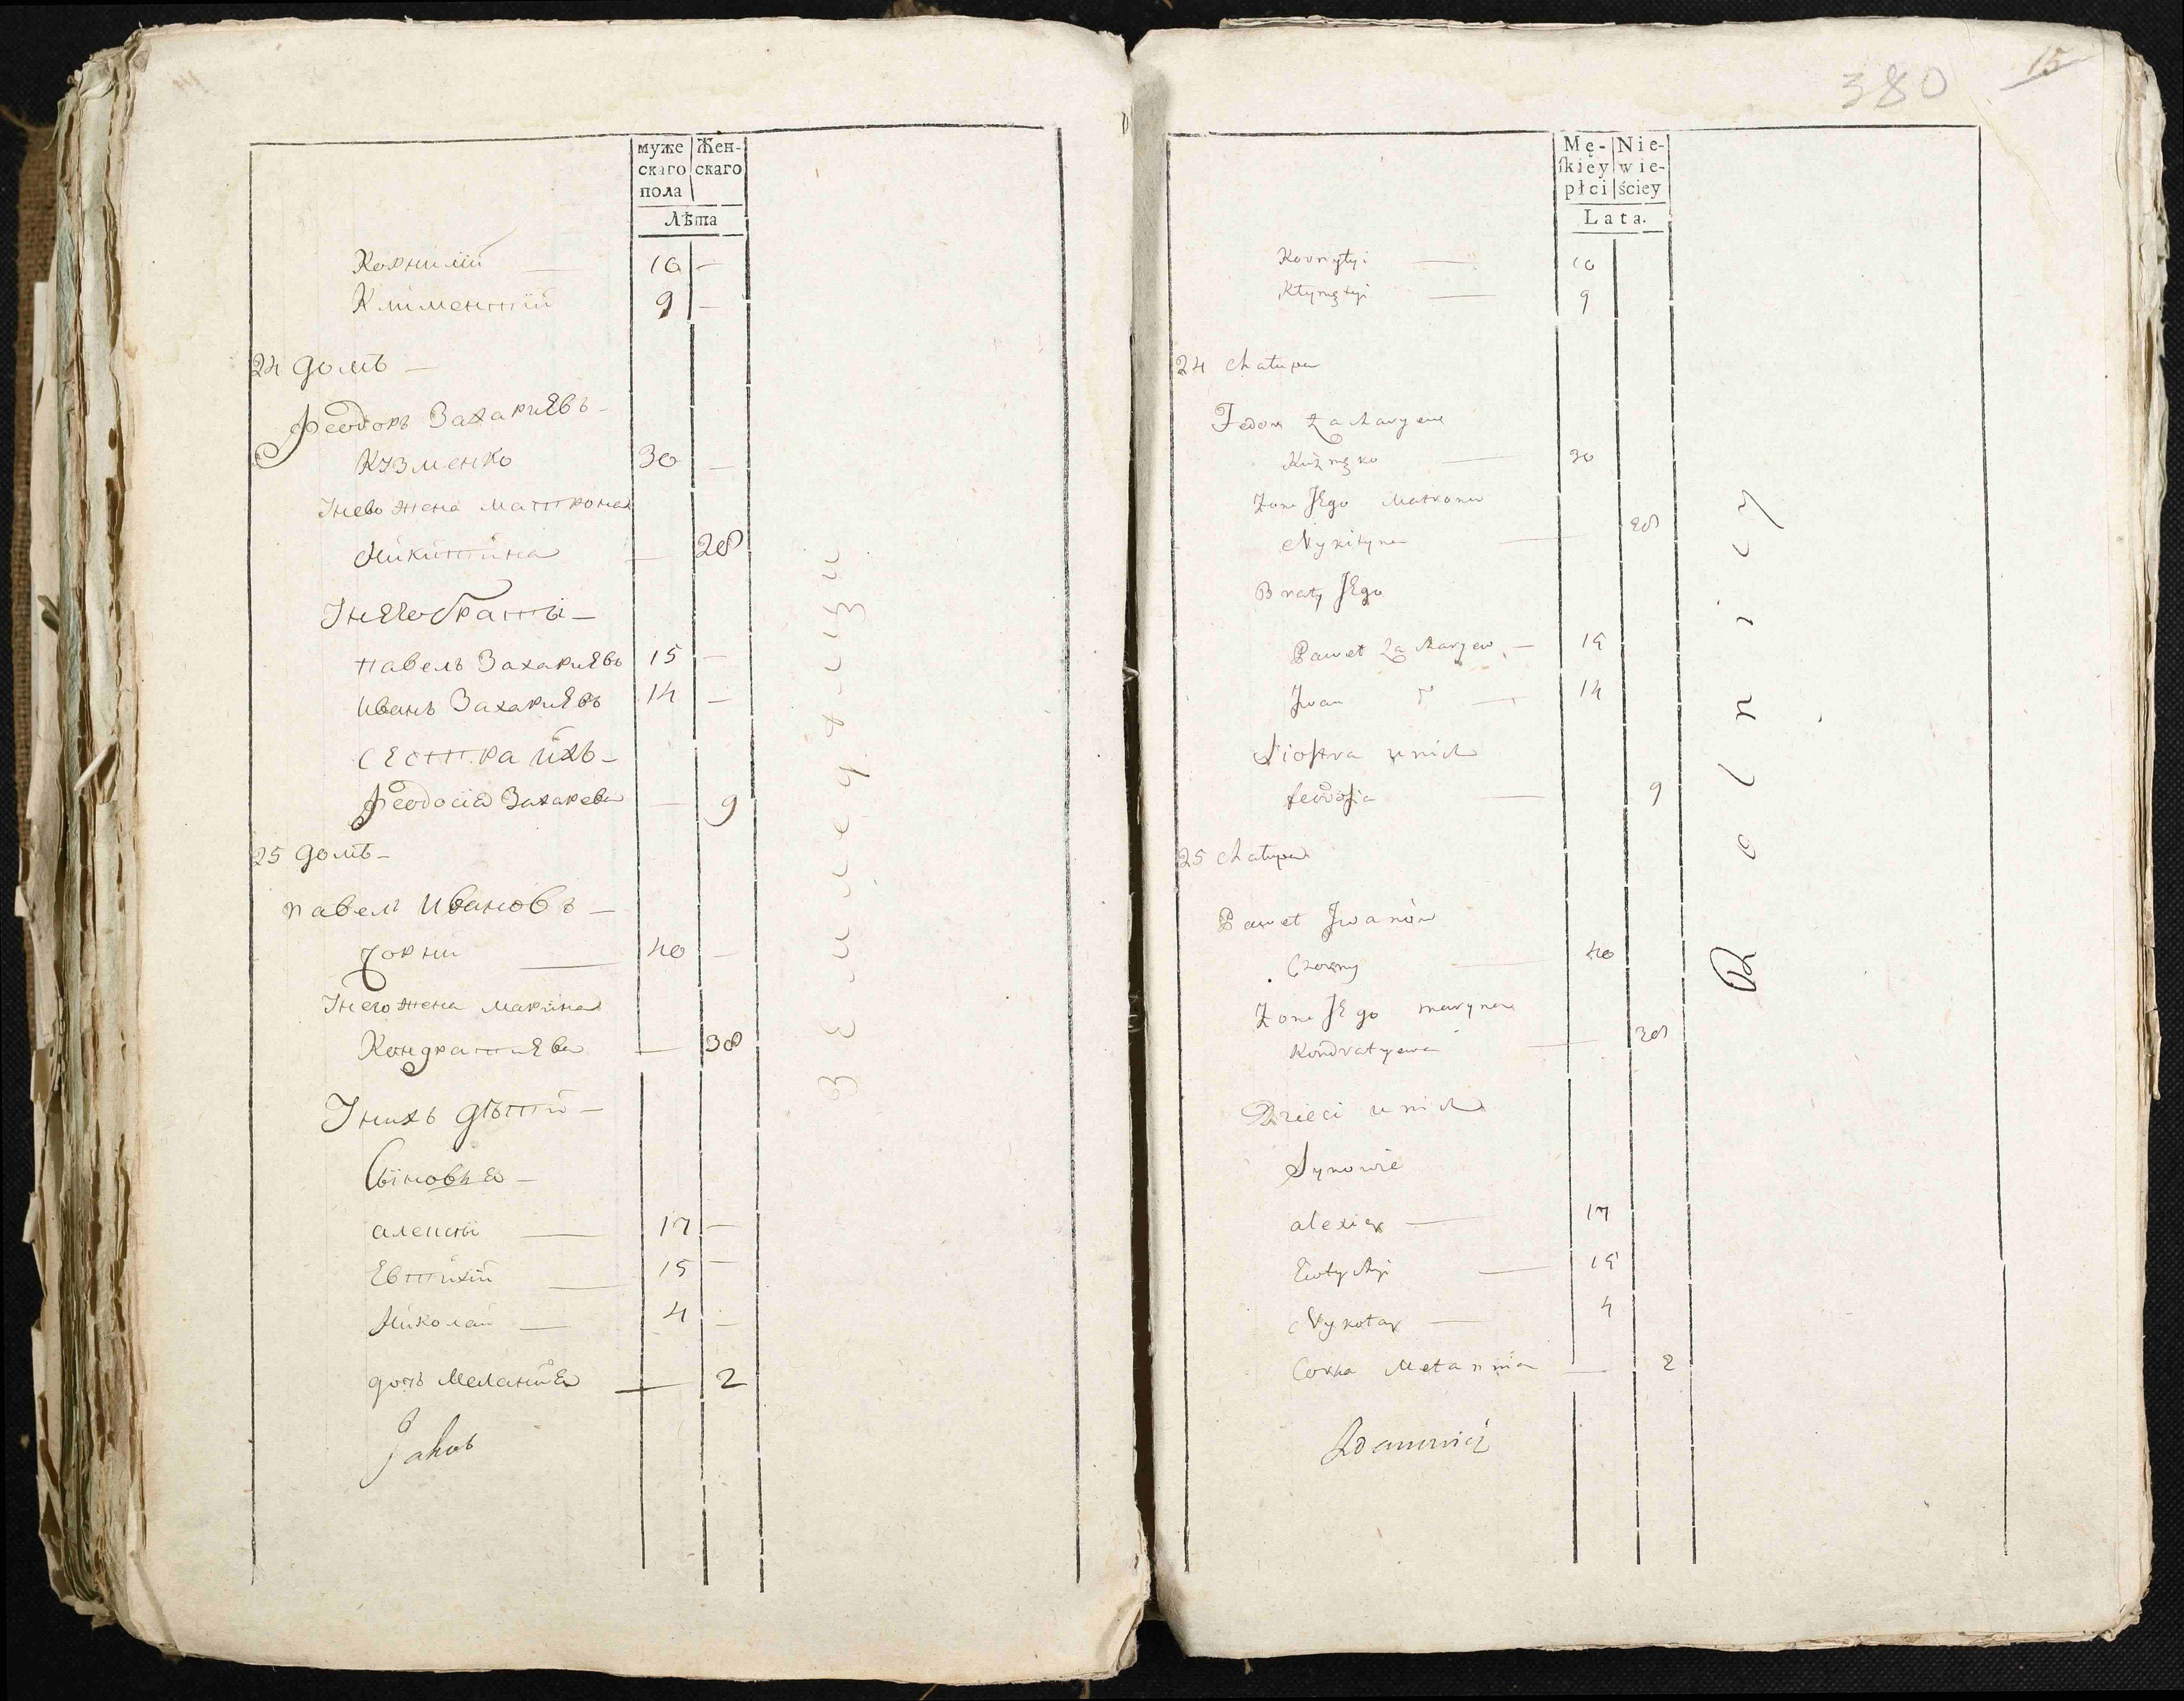 муже Жен-
скаго скаго
пола
Лѣта
Корнилїй — 10 —
Климентїй 9 —
24 домъ —
Феодоръ Захариевъ —
Кузменко 30 —
Інево жена матрона
Никитина — 28
Інегобраті —
павелъ Захариевъ 15 —
иванъ Захариевъ 14 —
сестра ихъ —
Феодосіа Захарева — 9
25 домъ —
павелъ Ивановъ —
Чорнй — 40 —
Інего жена марина
Кондратиева — 38
Інихъ дѣтий —
Сыновья —
алеѯій — 17 —
Евтихїй — 15 —
Николай — 4 —
дочь Меланиа — 2
Jakob
земледѣлцы
380
15
Mę- Nie-
skiey wie-
płci ściey
Lata.
Kornyłyi — 10
Kłymętyi — 9
24 chałupa
Fedor Zacharyew
Kuźmęko — 30
Zona Jego Matrona
Nykityna — 28
Braty Jego
Paweł Zacharyew — 15
Jwan — 14
Siostra u nich
feodosia — 9
25 chałupa
Paweł Jwanów
Czorny — 40
Zona Jego maryna
Kondratyewa — 38
Dzieci u nich
Synowie
alexiey — 17
Ewtychyi — 15
Nykołay — 4
Corka Mełannia — 2
Adamowicz
Rolnicy